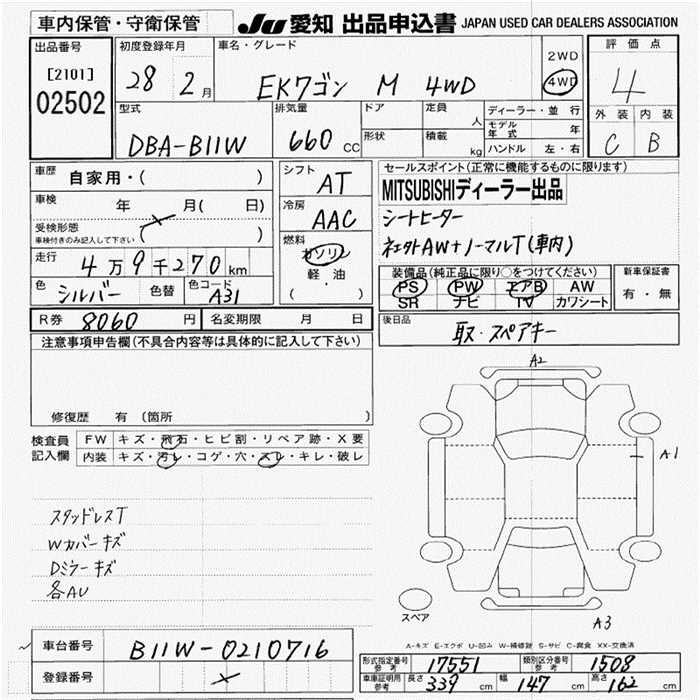 車内保管・守衛保管
JU 愛知 出品申込書 JAPAN USED CAR DEALERS ASSOCIATION
出品番号
[2101]
02502
初度登録年月
28 2月
車名・グレード
EKワゴン M 4WD
2WD
4WD
評価点
4
外装 内装
C B
型式
DBA-B11W
排気量
660 CC
ドア
形状
定員
人
積載
kg
ディーラー・並行
モデル年式 年
ハンドル 左・右
車歴 自家用・( )
車検 年 月( 日)
受検形態
車検付きのみ記入して下さい ( )
走行 4万9千270km
色 シルバー 色替 色コード A31
シフト AT
冷房 AAC
燃料 ガソリン
軽・油
( )
セールスポイント(正常に機能するものに限ります)
MITSUBISHIディーラー出品
シートヒーター
社外AW+ノーマルT(車内)
装備品(純正品に限り○をつけてください)
PS PW エアB AW
SR ナビ TV カワシート
新車保証書
有・無
R券 8060円 名変期限 月 日
後日品
取・スペアキー
注意事項申告欄(不具合内容等は具体的に記入して下さい)
修復歴 有 (箇所 )
検査員記入欄
FW キズ・飛石・ヒビ割・リペア跡・X要
内装 キズ・汚レ・コゲ・穴・スレ・キレ・破レ
スタッドレスT
Wカバーキズ
Dミラーキズ
各AU
A2
A1
A3
スペア
A-キズ E-エクボ U-凹み W-補修跡 S-サビ C-腐食 XX-交換済
車台番号 B11W-0210716
登録番号
形式指定番号参考 17551 類別区分番号参考 1508
車車証明用参考 長さ 339cm 幅 147cm 高さ 162cm